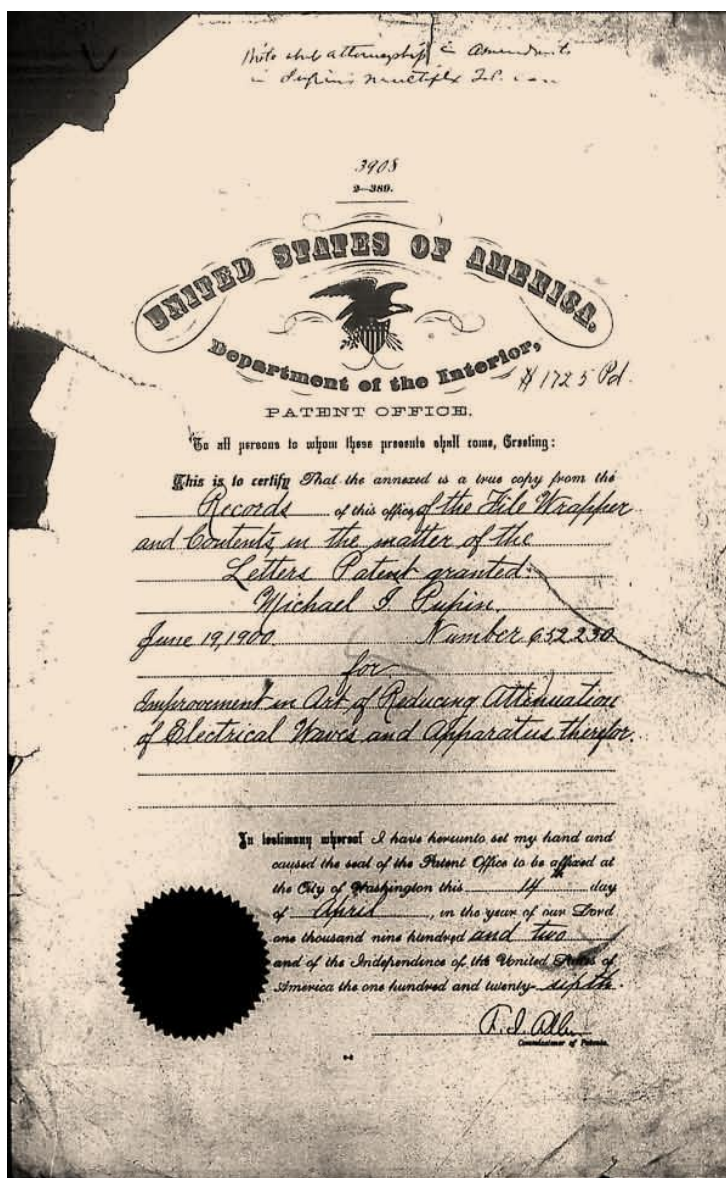 Note
attorneyship in Amendments
in Pupin's multiplex Tel. case
3908
2—389.
UNITED STATES OF AMERICA,
Department of the Interior,
$ 1725 Pd.
PATENT OFFICE.
To all persons to whom these presents shall come, Greeting:
This is to certify That the annexed is a true copy from the
Records of this office, of the File Wrapper
and Contents, in the matter of the
Letters Patent granted.
Michael I. Pupin.
June 19, 1900. Number 652230
for
Improvement in Art of Reducing Attenuation
of Electrical Waves and Apparatus therefor.
In testimony whereof I have hereunto set my hand and
caused the seal of the Patent Office to be affixed at
the City of Washington this 14th day
of April, in the year of our Lord
one thousand nine hundred and two
and of the Independence of the United States of
America the one hundred and twenty-sixth.
F. I. Allen
Commissioner of Patents.